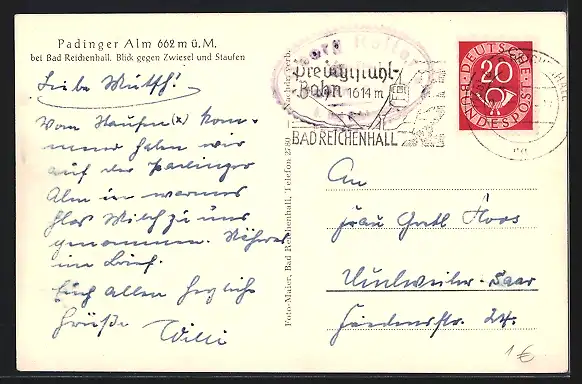 Padinger Alm 662 m ü. M.
bei Bad Reichenhall. Blick gegen Zwiesel und Staufen
Liebe Mutti!
Vom Staufen (x) kom-
mend haben wir
auf der Padinger
Alm ein warmes
Glas Milch zu uns
genommen. Näheres
im Brief.
Euch allen herzliche
Grüße Willi
Foto-Maier, Bad Reichenhall, Telefon 2780
Nachdr. verb.
Predigtstuhl-
Bahn 1614 m
BAD REICHENHALL
DEUTSCHE
BUNDESPOST
20
An
Frau
Koos
Urlweiler-Saar
Friedensstr. 24.
1 €